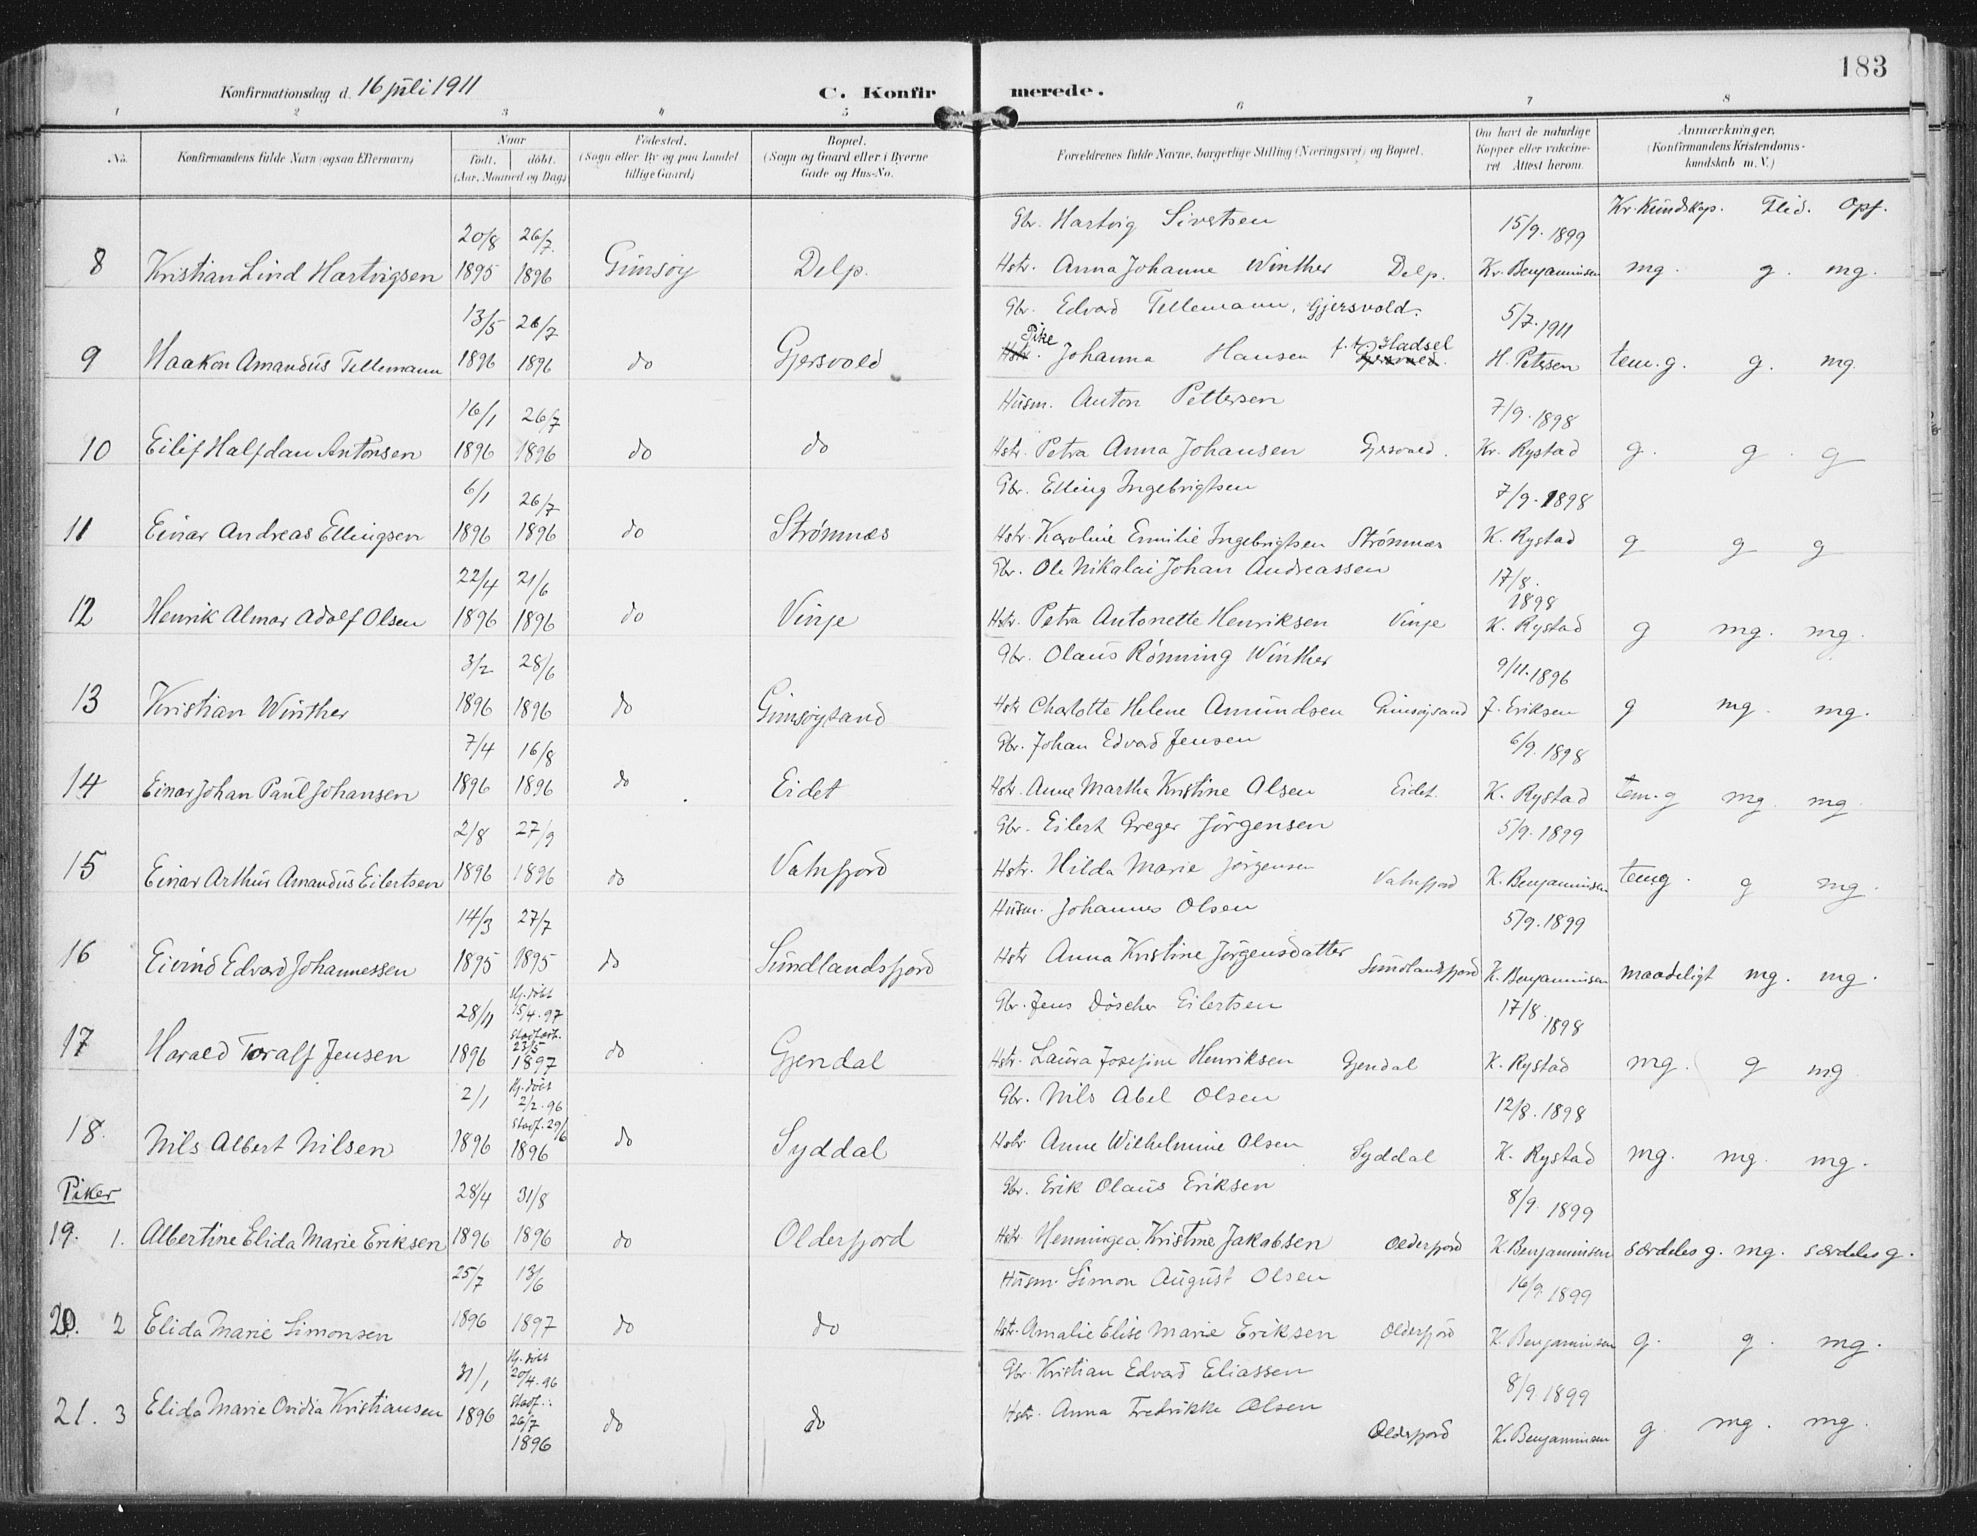 183
Konfirmationsdag d. 16 juli 1911 C. Konfirmerede.
1 2 3 4 5 6 7 8
No. Konfirmandens fulde Navn (ogsaa Efternavn) Naar født. døbt. (Aar, Maaned og Dag) Fødested. (Sogn eller By og paa Landet tillige Gaard) Bopæl. (Sogn og Gaard eller i Byerne Gade og Hus-No. Forældrenes fulde Navne, borgerlige Stilling (Næringsvei) og Bopæl. Om havt de naturlige Kopper eller vakcineret Attest herom. Anmærkninger. (Konfirmandens Kristendomskundskab m. V.)
Kr. Kundskap. Flid. Opf.
20/8 26/7. Gbr. Hartvig Sivertsen 15/9. 1899
8 Kristian Lind Hartvigsen 1895 1896 Gimsøy Delp. Hstr. Anna Johanne Winther Delp. Kr. Benjaminsen mg. g. mg.
13/5 26/7 Gbr. Edvard Tellemann, Gjersvold. 5/7. 1911
9 Haakon Amandus Tellemann 1896 1896 do Gjersvold Pike Johanna Hansen f. t. Hadsel H. Petersen tem. g. g. mg.
16/1 26/7 Husm. Anton Pettersen 7/9. 1898
10 Eilif Halfdan Antonsen 1896 1896 do do Hstr. Petra Anna Johansen Gjersvold. Kr. Rystad g. g. g
6/1 26/7 Gbr. Elling Ingebrigtsen 7/9. 1898
11 Einar Andreas Ellingsen 1896 1896 do Strømnæs Hstr. Karoline Emilie Ingebrigtsen Strømnæs K. Rystad g g g
22/4 21/6 Gbr. Ole Nikolai Johan Andreassen 17/8. 1898
12 Henrik Almar Adolf Olsen 1896 1896 do Vinje Hstr. Petra Antonette Henriksen Vinje K. Rystad g mg. mg.
3/2 28/6 Gbr. Olaus Rönning Winther 9/11. 1896
13 Kristian Winther 1896 1896 do Gimsøysand Hstr Charlotte Helene Amundsen Gimsøysand J. Eriksen g mg. mg.
7/4 16/8 Gbr. Johan Edvard Jensen 6/9. 1898
14 Einar Johan Paul Johansen 1896 1896 do Eidet Hstr. Anne Martha Kristine Olsen Eidet. K. Rystad tem. g mg. mg.
2/8 27/9 Gbr. Eilert Greger Jørgensen 5/9. 1899
15 Einar Arthur Amandus Eilertsen 1896 1896 do Vatnfjord Hstr. Hilda Marie Jørgensen Vatnfjord K. Benjaminsen temg. g mg.
14/3 27/7 Husm. Johannes Olsen 5/9. 1899
16 Eivind Edvard Johannessen 1895 1895 do Sundlandsfjord Hstr Anna Kristine Jørgensdatter Sundlandsfjord K. Benjaminsen maadeligt mg. mg.
28/11 Hj. døbt 15/4. 97 Gbr. Jens Döscher Eilertsen 17/8. 1898
17 Harald Toralf Jensen 1896 Stadfæst. 23/5 1897 do Gjendal Hstr. Laura Josefine Henriksen Gjendal K. Rystad mg. g mg
2/1 Hj. døbt 2/2. 96 Gbr. Nils Abel Olsen 12/8. 1898
18. Nils Albert Nilsen 1896 Stadf. 29/6 1896 do Syddal Hstr Anne Wilhelmine Olsen Syddal K. Rystad mg. mg. mg.
Piker 28/4 31/8 Gbr. Erik Olaus Eriksen 8/9. 1899
19. 1. Albertine Elida Marie Eriksen 1896 1896 do Olderfjord Hstr Henningea Kristine Jakobsen Olderfjord K. Benjaminsen særdeles g. mg. særdeles g.
25/7 13/6 Husm. Simon August Olsen 16/9. 1899
20. 2 Elida Marie Simonsen 1896 1897 do do Hstr. Amalie Elise Marie Eriksen Olderfjord K. Benjaminsen g. g. mg.
31/1 Hj. døbt 20/4. 96 Gbr. Kristian Edvard Eliassen 8/9. 1899
21. 3 Elida Marie Ovidia Kristiansen 1896 Stadf.: 26/7 1896 do do Hstr. Anna Fredrikke Olsen Olderfjord K. Benjaminsen g mg. mg.